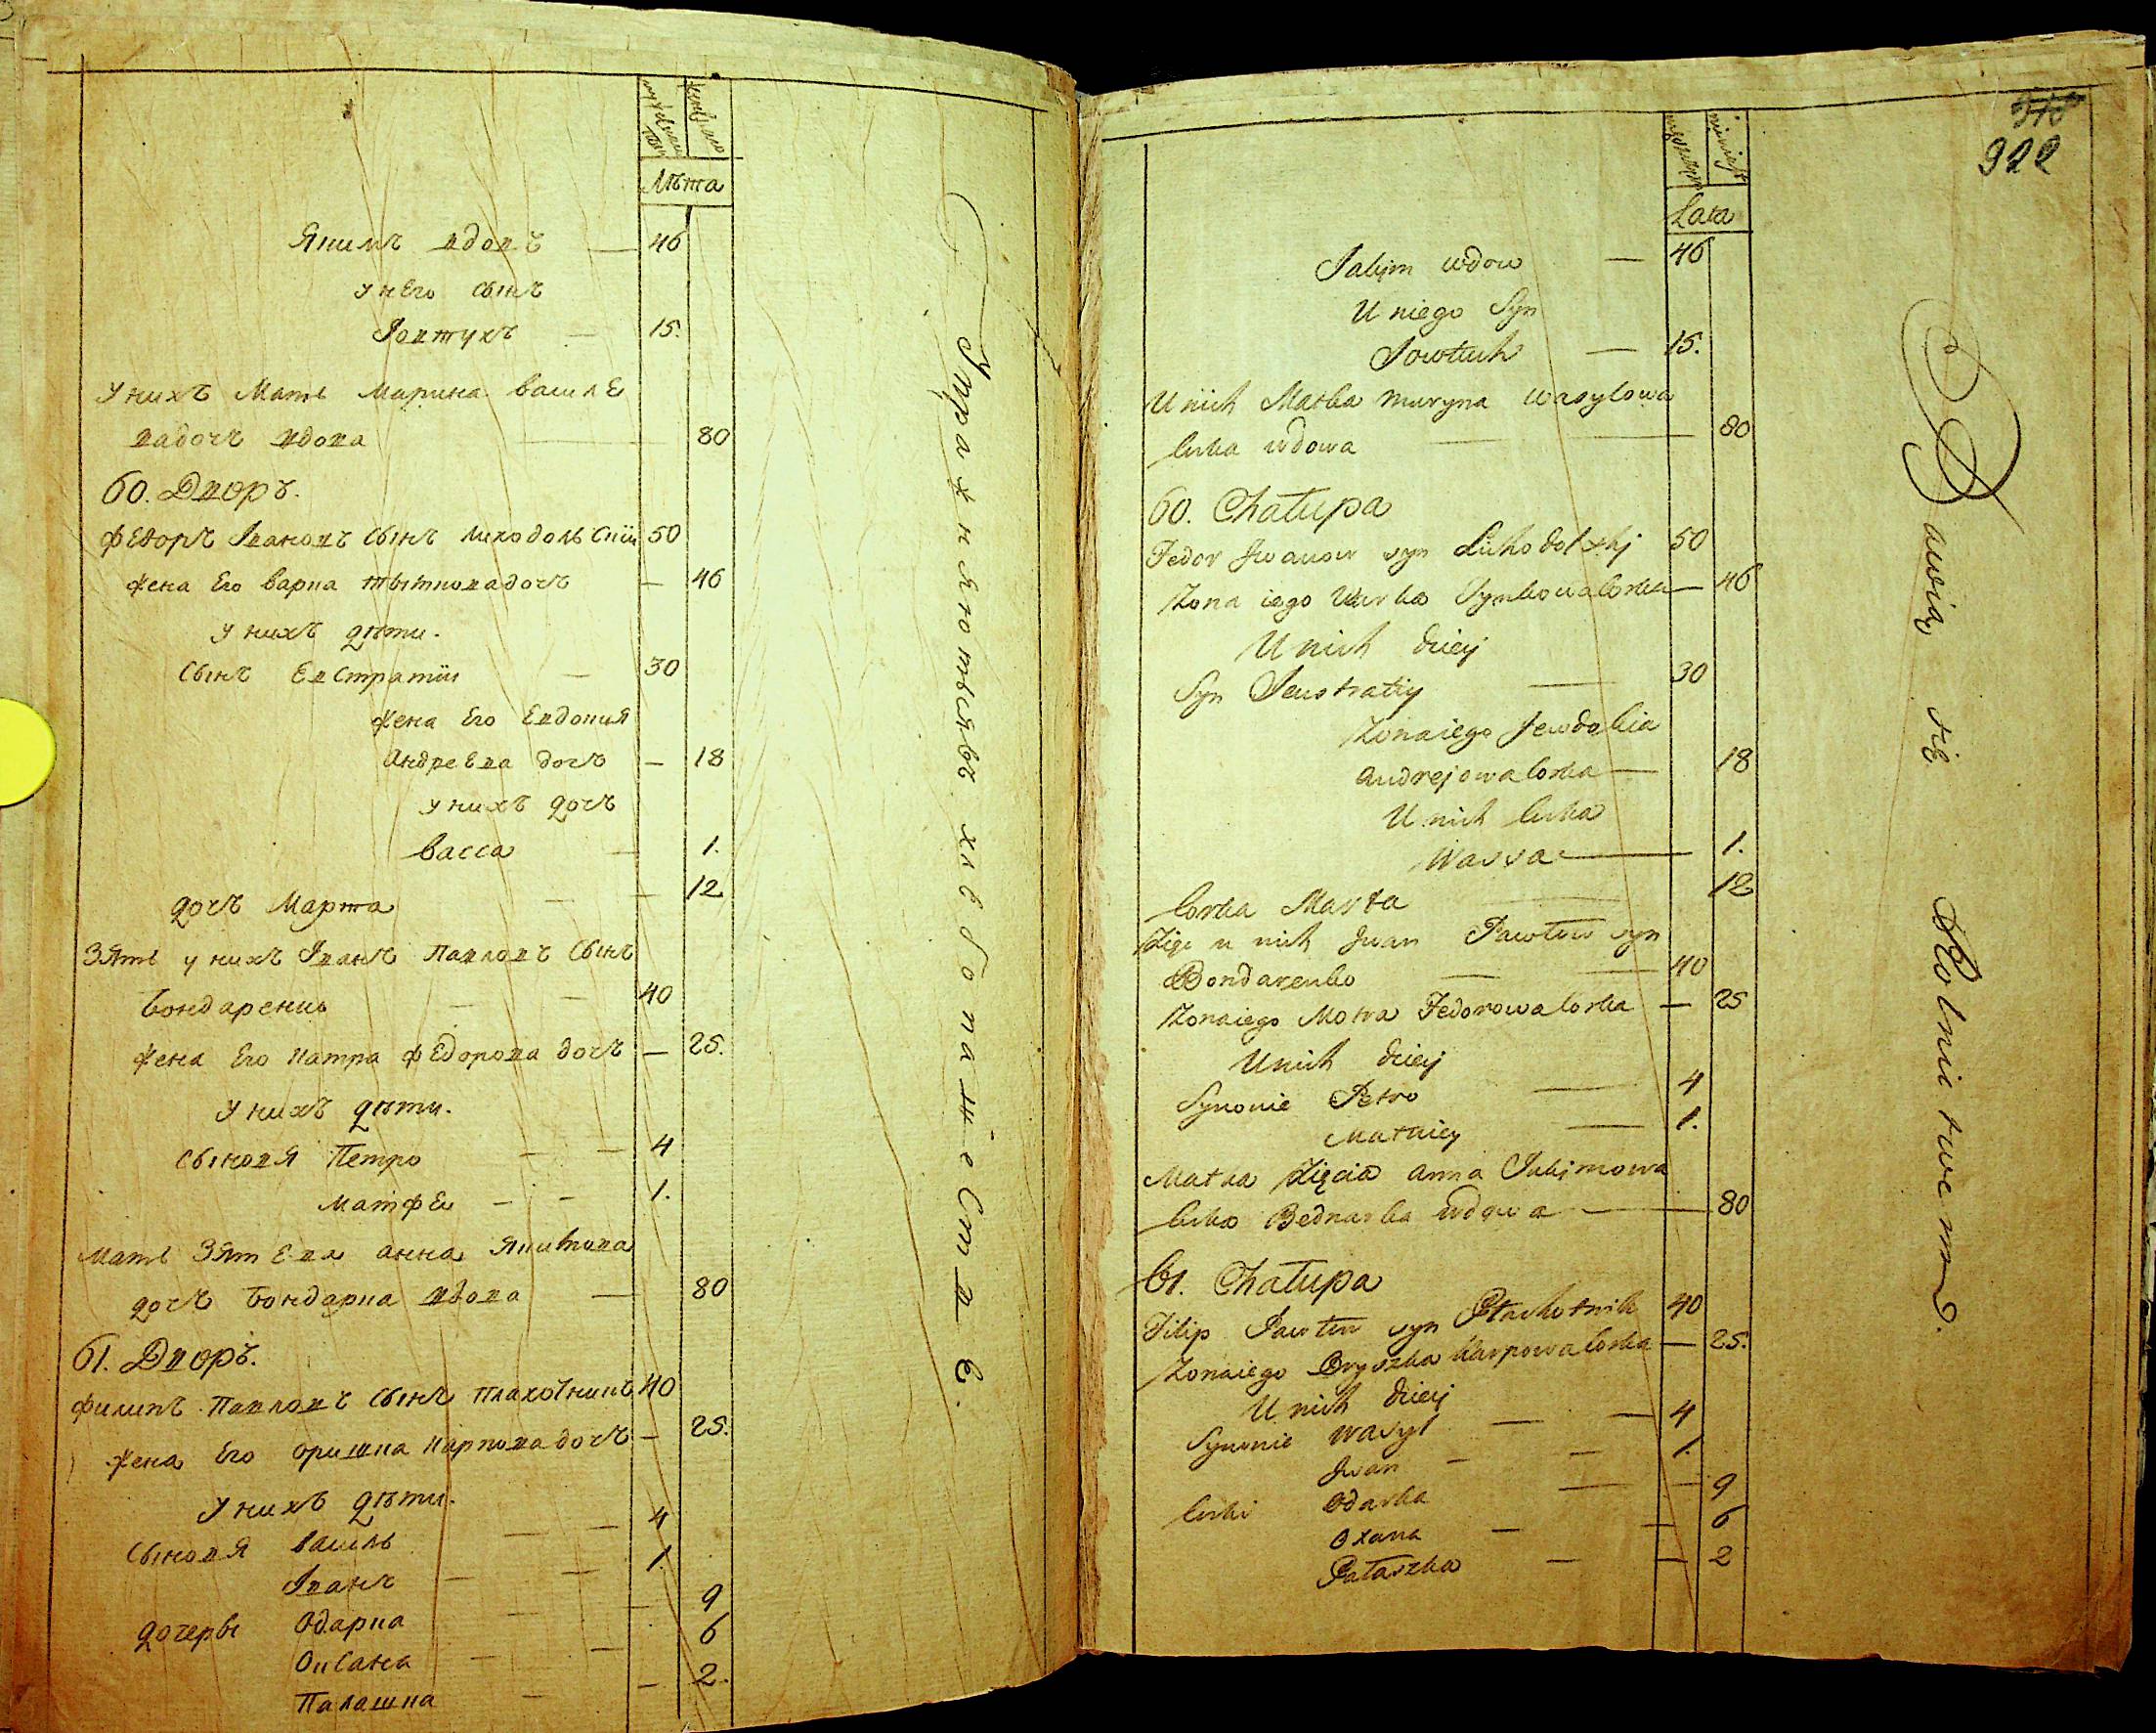 Лѣта
Якимъ вдовъ — 46
у него сынъ
Іовтухъ — 15.
У нихъ Мать Марина василе
вадочъ вдова — 80
60. Дворъ.
Федоръ Івановъ сынъ лиходольскій 50
жена его варка тымковадочъ — 46
у нихъ дѣти.
сынъ Евстратій — 30
жена его Евдокия
Андреева дочъ — 18
у нихъ дочъ
васса — 1.
дочъ Марта — 12
Зять у нихъ Іванъ Павловъ сынъ
бондаренко — 40
жена его матра Федорова дочъ — 25.
у нихъ дѣти.
сыновя Петро — 4
матфеи — 1.
мать Зятева анна якимова
дочъ бондарка вдова — 80
61. Дворъ.
Филипъ Павловъ сынъ плахотникъ 40
жена его оришка карповадочъ — 25.
у нихъ дѣти.
сыновя василь — 4
Іванъ — 1.
дочеры Одарка — 9
Оксана — 6
Палашка — 2.
Упражняютьсявъ хлѣбопашествѣ.
922
Lata
Jakim wdow — 46
U niego Syn
Jowtuch — 15.
U nich Matka Maryna wasylowa
Curka wdowa — 80
60. Chałupa
Fedor Jwanow syn Lichodolskj 50
Żona iego Warka Tymkowa Corka — 46
U nich dziey
Syn Jeustratiy — 30
Żona iego Jewdokia
Andrejowa Corka — 18
U nich Curka
Wassa — 1.
Corka Marta — 12
Zięc u nich Jwan Pawłow syn
Bondarenko — 40
Żona iego Motra Fedorowa Corka — 25
U nich dziey
Synowie Petro — 4
Matwiey — 1.
Matka Zięcia anna Jakimowa
Curka Bednarka wdowa — 80
61. Chałupa
Filip Pawłow syn Płachotnik 40
Żona iego Oryszka Karpowa Corka — 25.
U nich dziey
Synowie Wasyl — 4
Jwan — 1.
Curki Odarka — 9
Oxana — 6
Pałaszka — 2
Bawią się Rolnictwem.